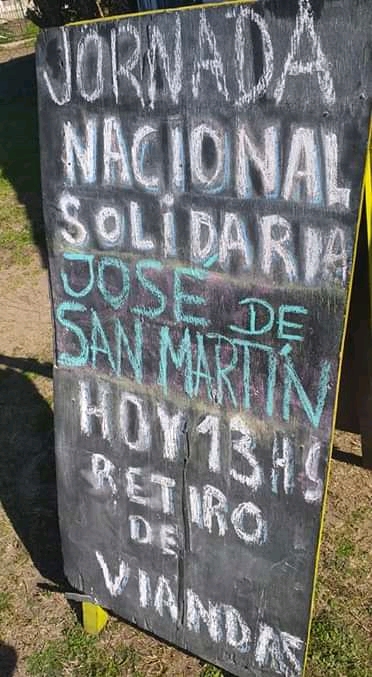 JORNADA
NACIONAL
SOLiDARIA
JOSÉ DE
SAN MARTÍN
HOY 13HS
RETIRO
DE
VIANDAS